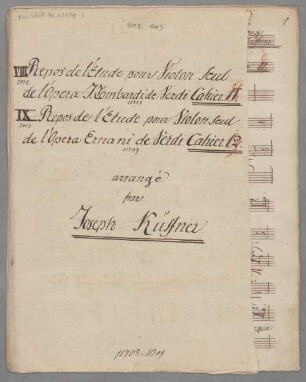 VIII Repos de l'Étude pour Violon seul
de l'Opera I Lombardi de Verdi Cahier 11.
IX Repos de l'Étude pour Violon seul
de l'Opera Ernani de Verdi Cahier 12.
11709
arrangé
par
Joseph Küffner
11708-11709